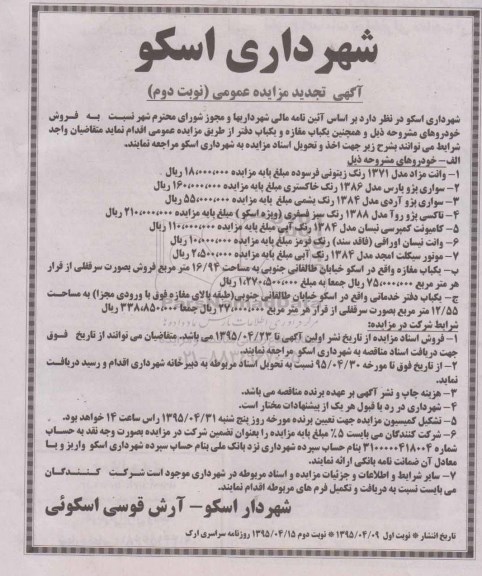 شهرداری اسکو
آگهی تجدید مزایده عمومی (نوبت دوم)
شهرداری اسکو در نظر دارد بر اساس آئین نامه مالی شهرداریها و مجوز شورای محترم شهر نسبت به فروش
خودروهای مشروحه ذیل و همچنین یکباب مغازه و یکباب دفتر از طریق مزایده عمومی اقدام نماید متقاضیان واجد
شرایط می توانند بشرح زیر جهت اخذ و تحویل اسناد مزایده به شهرداری اسکو مراجعه نمایند.
الف- خودروهای مشروحه ذیل
۱- وانت مزاد مدل ۱۳۷۱ رنگ زیتونی فرسوده مبلغ پایه مزایده ۱۸،۰۰۰،۰۰۰ ریال
۲- سواری پژو پارس مدل ۱۳۸۶ رنگ خاکستری مبلغ پایه مزایده ۱۶۰،۰۰۰،۰۰۰ ریال
۳- سواری پژو آردی مدل ۱۳۸۴ رنگ یشمی مبلغ پایه مزایده ۵۵،۰۰۰،۰۰۰ ریال
۴- تاکسی پژو روآ مدل ۱۳۸۸ رنگ سبز فسفری (ویژه اسکو) مبلغ پایه مزایده ۲۱۰،۰۰۰،۰۰۰ ریال
۵- کامیونت کمپرسی نیسان مدل ۱۳۸۴ رنگ آبی مبلغ پایه مزایده ۱۱۰،۰۰۰،۰۰۰ ریال
۶- وانت نیسان اوراقی (فاقد سند) رنگ قرمز مبلغ پایه مزایده ۱۰،۰۰۰،۰۰۰ ریال
۷- موتور سیکلت امجد مدل ۱۳۸۴ رنگ آبی مبلغ پایه مزایده ۲،۵۰۰،۰۰۰ ریال
ب- یکباب مغازه واقع در اسکو خیابان طالقانی جنوبی به مساحت ۱۶/۹۴ متر مربع فروش بصورت سرقفلی از قرار
هر متر مربع ۷۵،۰۰۰،۰۰۰ ریال جمعا به مبلغ ۱،۲۷۰،۵۰۰،۰۰۰ ریال
ج- یکباب دفتر خدماتی واقع در اسکو خیابان طالقانی جنوبی(طبقه بالای مغازه فوق با ورودی مجزا) به مساحت
۱۲/۵۵ متر مربع بصورت سرقفلی از قرار هر متر مربع ۲۷،۰۰۰،۰۰۰ ریال جمعا ۳۳۸،۸۵۰،۰۰۰ ریال
شرایط شرکت در مزایده:
۱- فروش اسناد مزایده از تاریخ نشر اولین آگهی تا ۱۳۹۵/۰۴/۲۳ می باشد. متقاضیان می توانند از تاریخ فوق
جهت دریافت اسناد مناقصه به شهرداری اسکو مراجعه نمایند.
۲- از تاریخ فوق تا مورخه ۹۵/۰۴/۳۰ نسبت به تحویل اسناد مربوطه به دبیرخانه شهرداری اقدام و رسید دریافت
نماید.
۳- هزینه چاپ و نشر آگهی بر عهده برنده مناقصه می باشد.
۴- شهرداری در رد یا قبول هر یک از پیشنهادات مختار است.
۵- تشکیل کمیسیون مزایده جهت تعیین برنده مورخه روز پنج شنبه ۱۳۹۵/۰۴/۳۱ راس ساعت ۱۴ خواهد بود.
۶- شرکت کنندگان می بایست ۵٪ مبلغ پایه مزایده را بعنوان تضمین شرکت در مزایده بصورت وجه نقد به حساب
شماره ۳۱۰۰۰۰۰۴۱۸۰۰۴ بنام حساب سپرده شهرداری نزد بانک ملی بنام حساب سپرده شهرداری اسکو واریز و یا
معادل آن ضمانت نامه بانکی ارائه نمایند.
۷- سایر شرایط و اطلاعات و جزئیات مزایده و اسناد مربوطه در شهرداری موجود است شرکت کنندگان
می بایست نسبت به دریافت و تکمیل فرم های مربوطه اقدام نمایند.
شهردار اسکو- آرش قوسی اسکوئی
تاریخ انتشار * نوبت اول ۱۳۹۵/۰۴/۰۹ * نوبت دوم ۱۳۹۵/۰۴/۱۵ روزنامه سراسری ارک